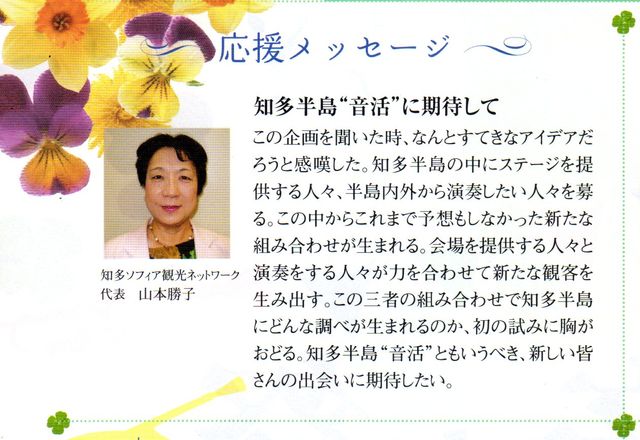 応援メッセージ
知多半島“音活”に期待して
この企画を聞いた時、なんとすてきなアイデアだ
ろうと感嘆した。知多半島の中にステージを提
供する人々、半島内外から演奏したい人々を募
る。この中からこれまで予想もしなかった新たな
組み合わせが生まれる。会場を提供する人々と
演奏をする人々が力を合わせて新たな観客を
生み出す。この三者の組み合わせで知多半島
にどんな調べが生まれるのか、初の試みに胸が
おどる。知多半島“音活”ともいうべき、新しい皆
さんの出会いに期待したい。
知多ソフィア観光ネットワーク
代表　山本勝子